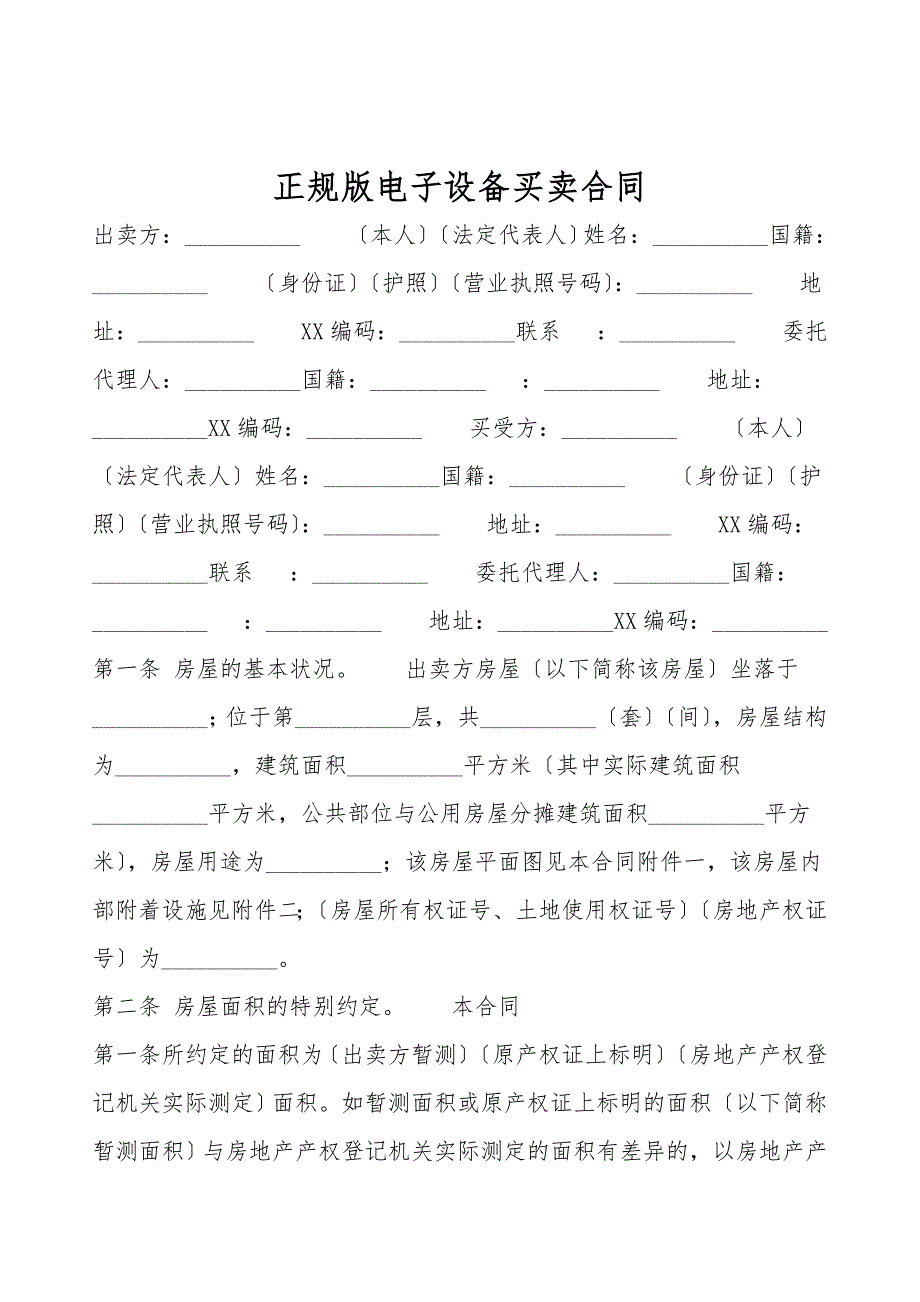 正规版电子设备买卖合同
出卖方：__________ 〔本人〕〔法定代表人〕姓名：__________国籍：
__________ 〔身份证〕〔护照〕〔营业执照号码〕：__________ 地
址：__________ XX 编码：__________联系 ：__________ 委托
代理人：__________国籍：__________ ：__________ 地址：
__________XX 编码：__________ 买受方：__________ 〔本人〕
〔法定代表人〕姓名：__________国籍：__________ 〔身份证〕〔护
照〕〔营业执照号码〕：__________ 地址：__________ XX 编码：
__________联系 ：__________ 委托代理人：__________国籍：
__________ ：__________ 地址：__________XX 编码：__________
第一条 房屋的基本状况。 出卖方房屋〔以下简称该房屋〕坐落于
__________；位于第__________层，共__________〔套〕〔间〕，房屋结构
为__________，建筑面积__________平方米〔其中实际建筑面积
__________平方米，公共部位与公用房屋分摊建筑面积__________平方
米〕，房屋用途为__________；该房屋平面图见本合同附件一，该房屋内
部附着设施见附件二；〔房屋所有权证号、土地使用权证号〕〔房地产权证
号〕为__________。
第二条 房屋面积的特别约定。 本合同
第一条所约定的面积为〔出卖方暂测〕〔原产权证上标明〕〔房地产产权登
记机关实际测定〕面积。如暂测面积或原产权证上标明的面积〔以下简称
暂测面积〕与房地产产权登记机关实际测定的面积有差异的，以房地产产